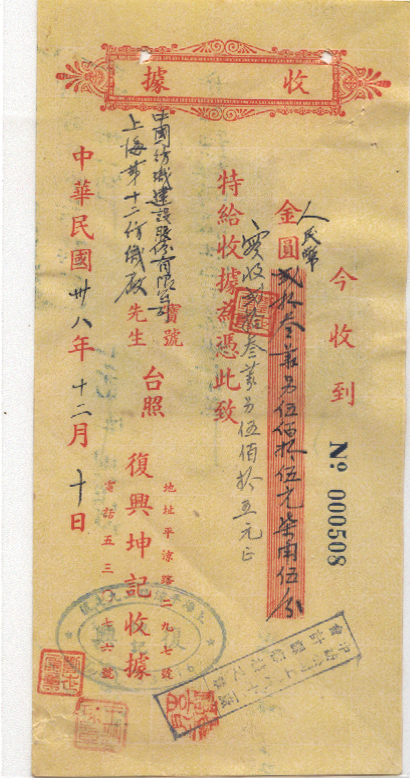 收據
今收到
No 000508
人民幣
金圓
貳拾叁萬另伍佰拾伍元柒角伍分
實收貳拾叁萬另伍佰拾五元正
特給收據為憑此致
寶號
先生
台照
中國紡織建設股份有限公司
上海第十二紡織廠
復興坤記收據
地址平涼路二九七號
電話五三〇七六號
中華民國卅八年十二月十日